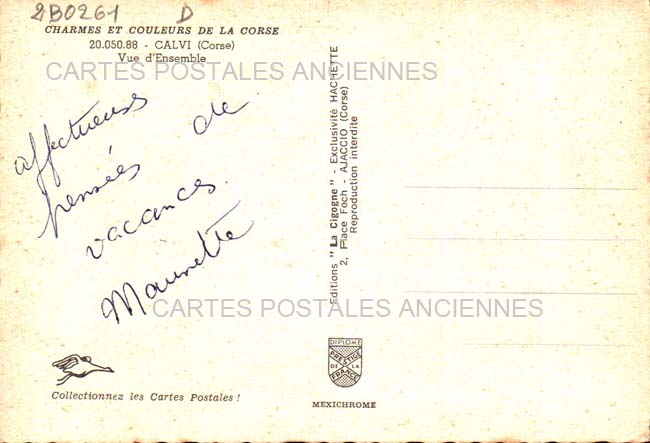 2B0261 D
CHARMES ET COULEURS DE LA CORSE
20.050.88 - CALVI (Corse)
Vue d'Ensemble
CARTES POSTALES ANCIENNES
affectueuses
pensées de
vacances.
Editions "La Cigogne" - Exclusivité HACHETTE
2, Place Foch - AJACCIO (Corse)
Reproduction interdite
CARTES POSTALES ANCIENNES
DIPLOME
PRESTIGE
DE LA
FRANCE
Collectionnez les Cartes Postales !
MEXICHROME